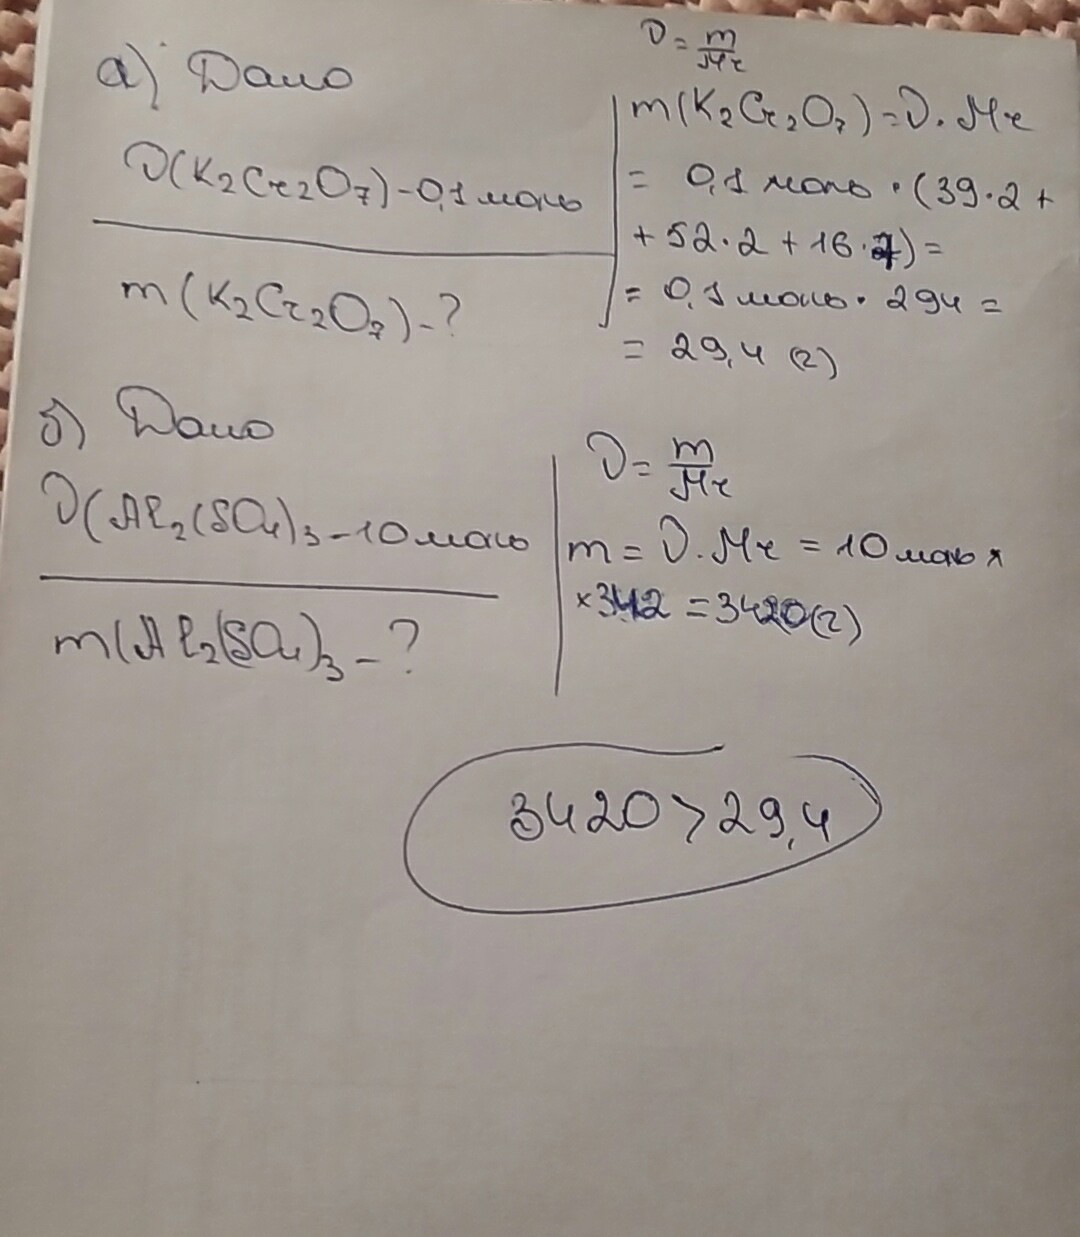 а) Дано
ν(K₂Cr₂O₇)-0,1 моль
m(K₂Cr₂O₇)-?
ν = m/Mr
m(K₂Cr₂O₇)=ν.Mr
= 0,1 моль · (39·2 +
+ 52·2 + 16·7) =
= 0,1 моль · 294 =
= 29,4 (г)
б) Дано
ν(Al₂(SO₄)₃-10 моль
m(Al₂(SO₄)₃-?
ν = m/Mr
m = ν.Mr = 10 моль ×
×342 = 3420(г)
3420 > 29,4